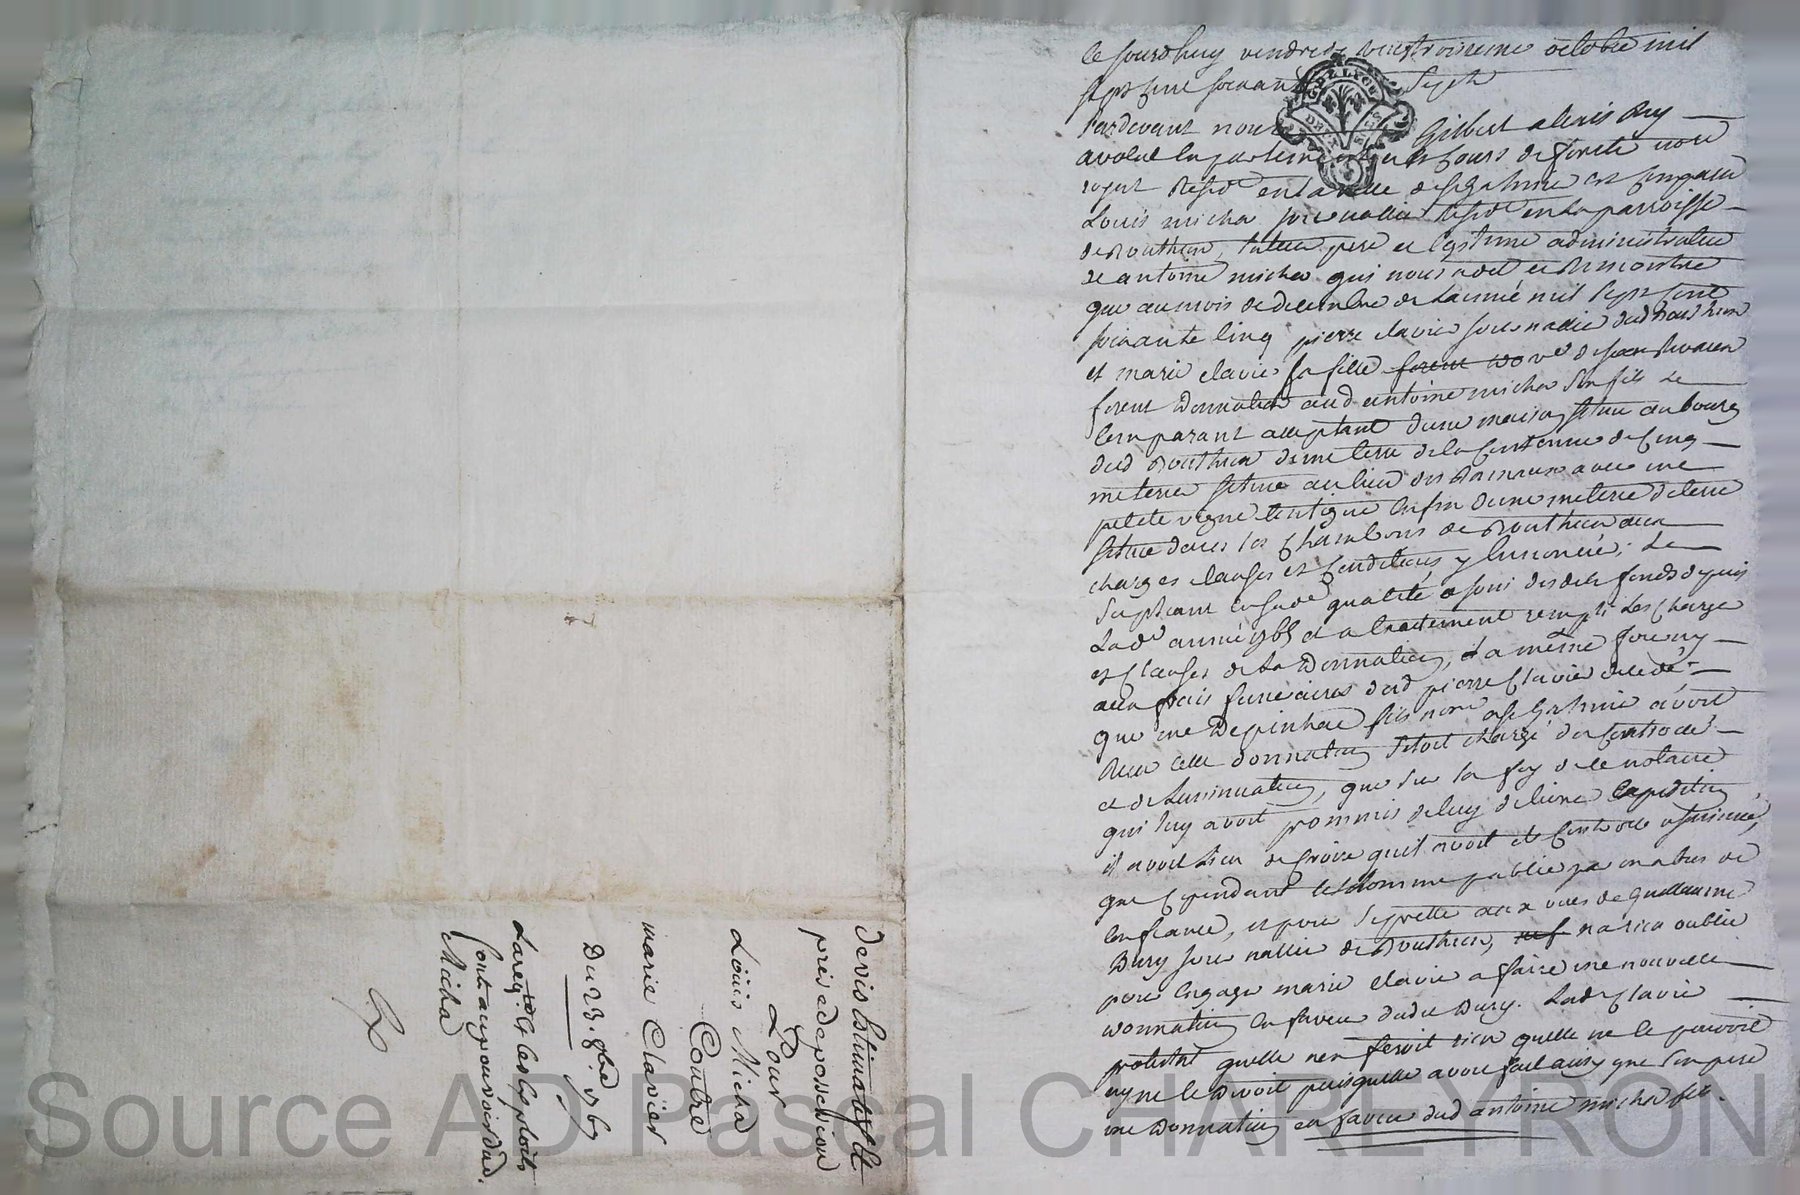 Ce jourdhuy vendredy vingt troisieme octobre mil
sept cent soixante Sept
Pardevant nous Gilbert alexis Rey
avocat en parlement et es Cours de foretz nore
royal Resid.t en la ville de st Galmier est Comparu
Louis micha journallier Resid.t en la parroisse
de Bouthion, tuteur pere et legitime administrateur
de antoine micha qui nous a dit et Remontré
que au mois de decembre de Lannée mil sept cent
soixante cinq pierre clavier journallier dud bouthion
et marie clavier sa fille ve de jean
firent Donnation aud antoine micha son fils Le
Comparant acceptant dune maison situee au bourg
dud Bouthion dune terre de la Contenue de Cinq
meterée situee au lieu des avec une
petite vigne Contigue Enfin dune meterée de terre
située dans les Chambons de Bouthion aux
charges clauses et Conditions y Ennoncées; Le
Supliant en sad.e qualité a joui desdits fonds depuis
Lad.e année 1765 et a Exactement rempli Les Charges
et Clauses de La Donnation, et a même fourny
aux frais funeraires dud pierre Clavier decedé
que me Depinhac fils nore a st Galmier avoit
Receu cette donnation setoit chargé du Controlle
et de Linsinuation, que sur la foy de ce notaire
qui luy avoit prommis de luy delivrer Expedition
il avoit Lieu de Croire quil avoit été Controllé et insinué,
que Cependant cet homme public par un abus de
Confiance, et pour se pretter aux vues de Guillaume
Dury journallier de Bouthion, na rien oublié
pour Engager marie clavier a faire une nouvelle
Donnation en faveur dudit Dury. Lad.e Clavier
protestat quelle nen feroit rien quelle ne le pouvoit
ny ne le devoit puisquelle avoit fait ainsy que son pere
une Donnation en faveur dud antoine micha fils.
Devis Estimatif et
prise de possession
Pour
Loüis Micha
Contre
marie Clavier
Du 23. 8bre 1767
La req.te et les Exploits
sont au pouvoir dud.
Micha
GDE LYON
Source AD Pascal CHARLEYRON